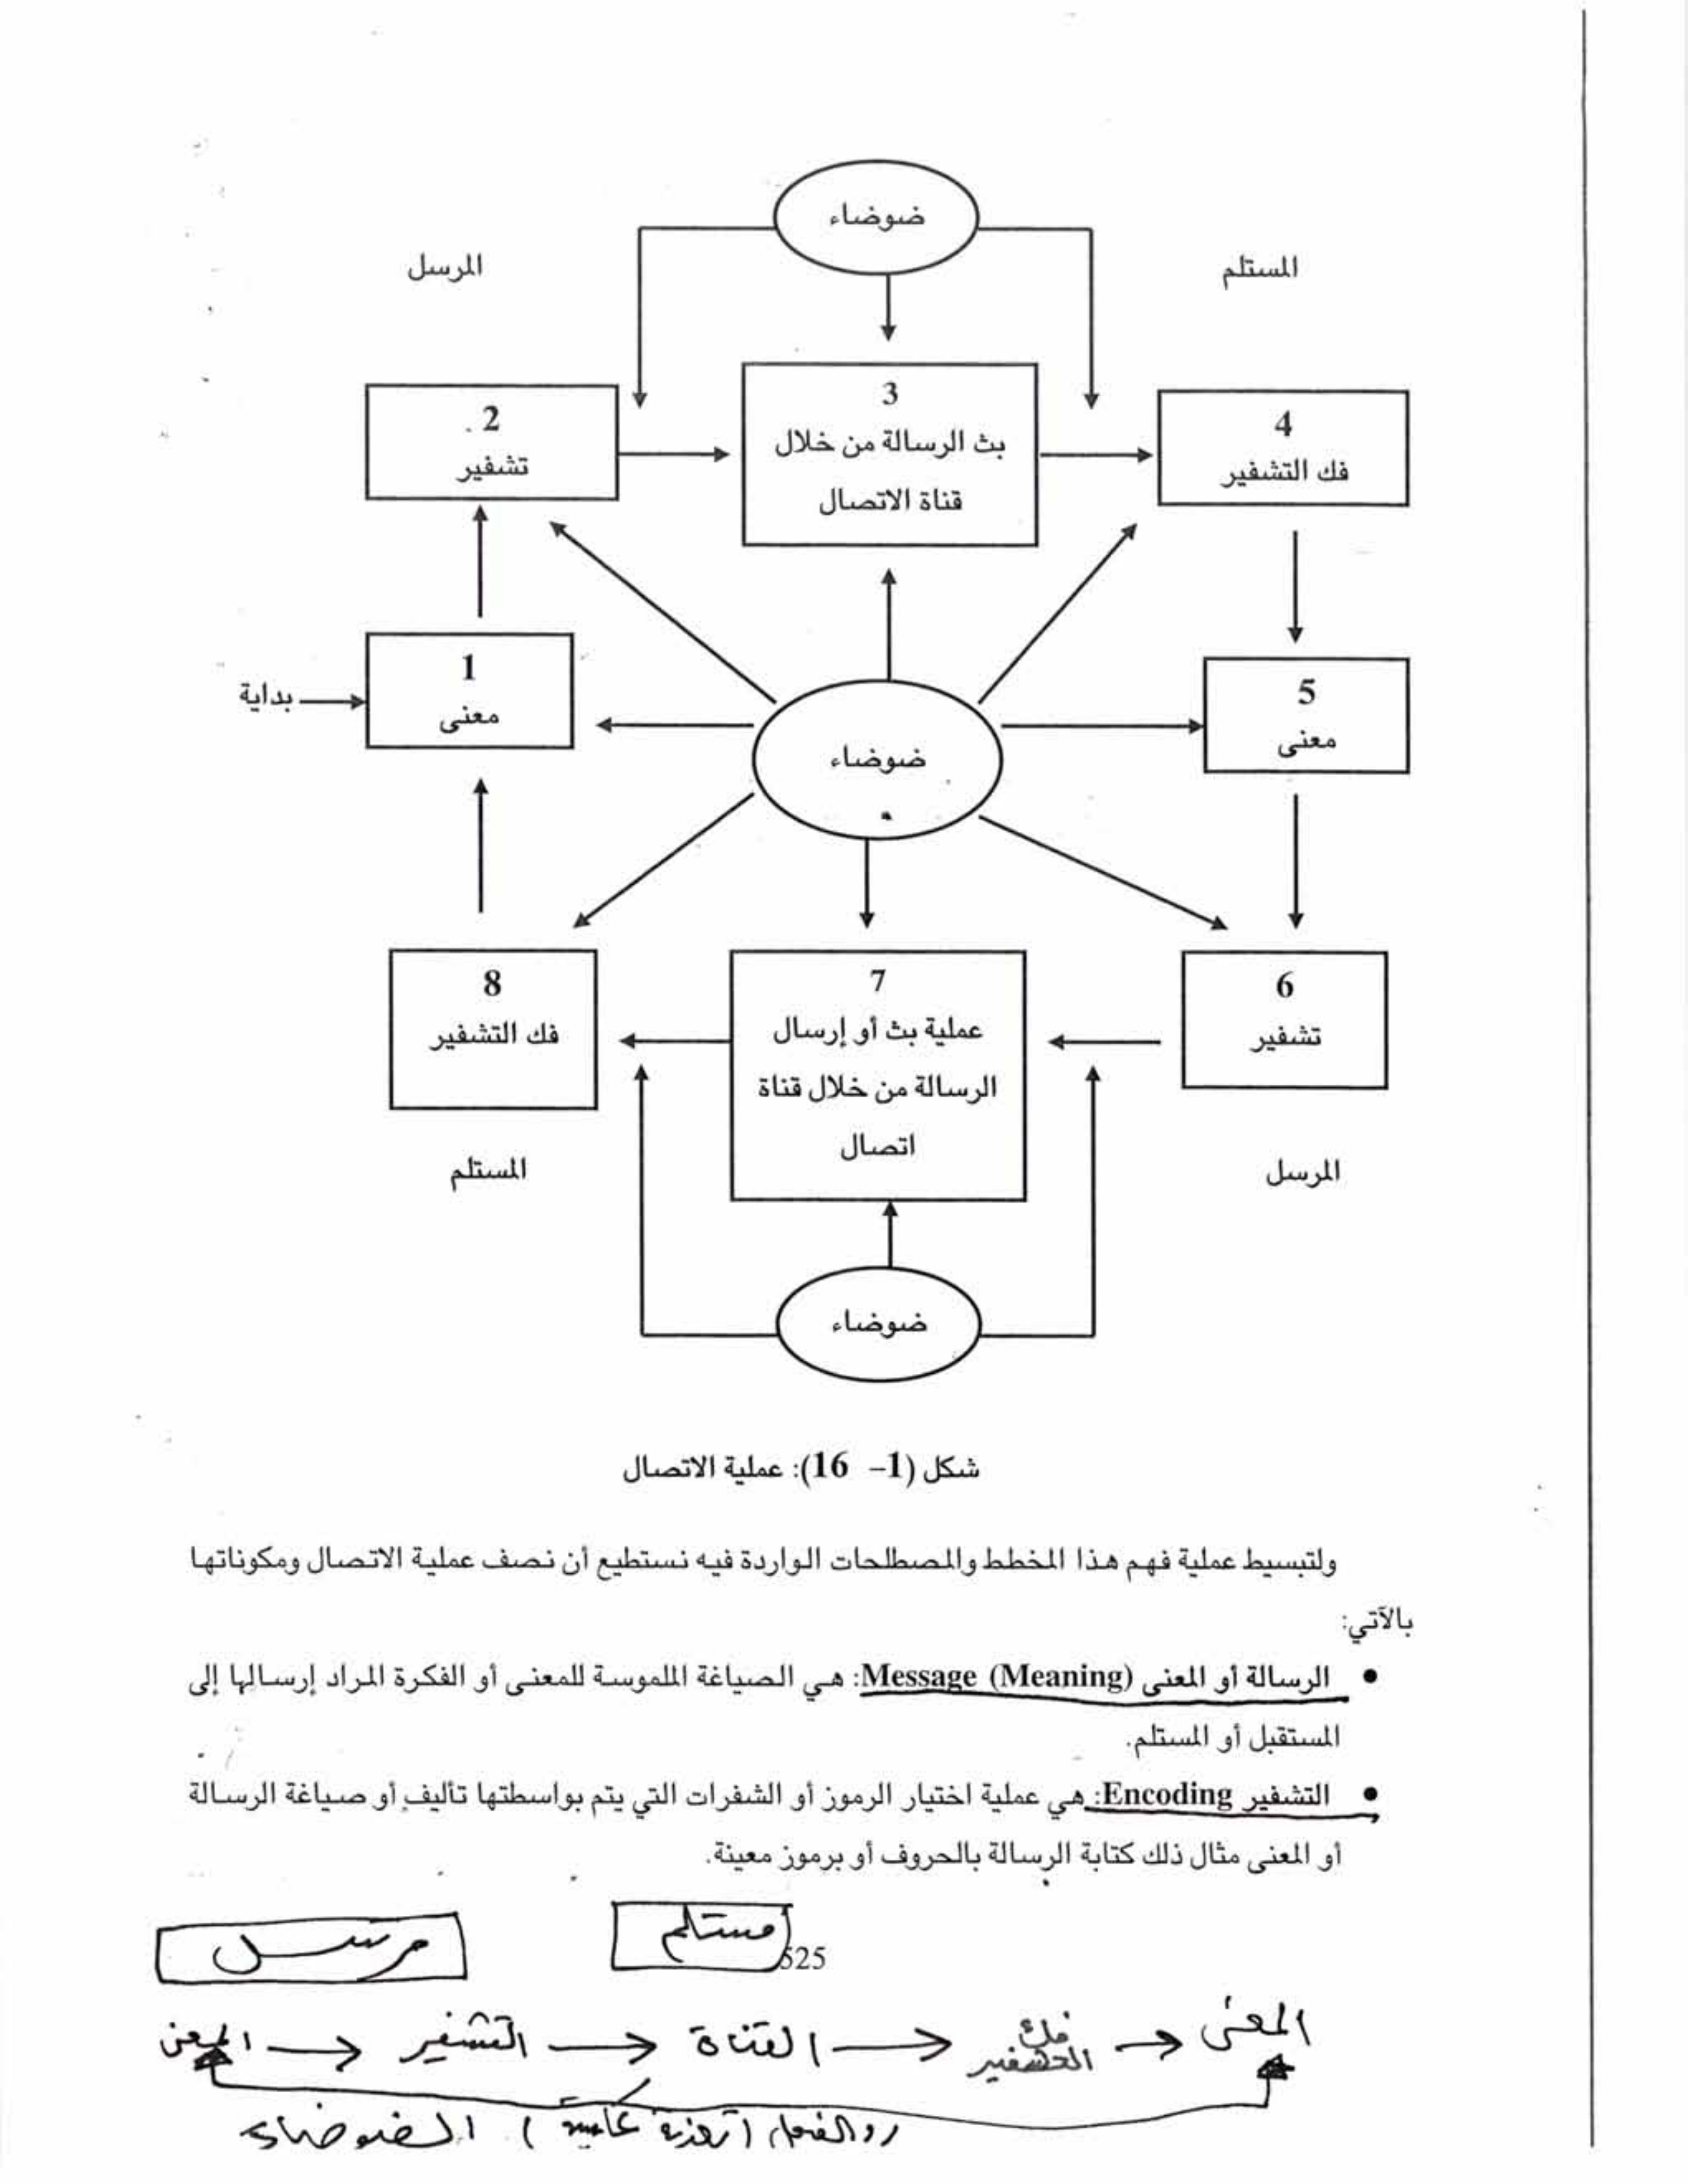 ضوضاء
المرسل
المستلم
2
تشفير
3
بث الرسالة من خلال
قناة الاتصال
4
فك التشفير
بداية
1
معنى
ضوضاء
5
معنى
8
فك التشفير
7
عملية بث أو إرسال
الرسالة من خلال قناة
اتصال
6
تشفير
المستلم
المرسل
ضوضاء
شكل (1– 16): عملية الاتصال
ولتبسيط عملية فهم هذا المخطط والمصطلحات الواردة فيه نستطيع أن نصف عملية الاتصال ومكوناتها
بالآتي:
• الرسالة أو المعنى Message (Meaning): هي الصياغة الملموسة للمعنى أو الفكرة المراد إرسالها إلى
المستقبل أو المستلم.
• التشفير Encoding: هي عملية اختيار الرموز أو الشفرات التي يتم بواسطتها تأليف أو صياغة الرسالة
أو المعنى مثال ذلك كتابة الرسالة بالحروف أو برموز معينة.
مستلم
مرسل
525
المعنى → التشفير → القناة → فك التشفير → المعنى
(تغذية عكسية) الضوضاء